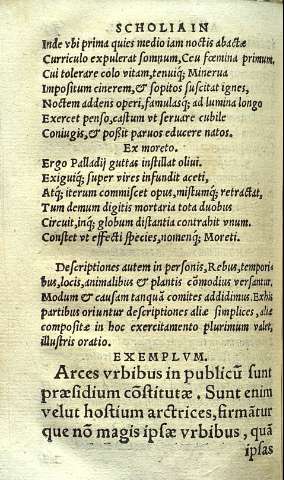 SCHOLIA IN
Inde vbi prima quies medio iam noctis abactæ
Curriculo expulerat somnum, Ceu fœmina primum,
Cui tolerare colo vitam, tenuiq; Minerua
Impositum cinerem, & sopitos suscitat ignes,
Noctem addens operi, famulasq; ad lumina longo
Exercet penso, castum vt seruare cubile
Coniugis, & poßit paruos educere natos.
Ex moreto.
Ergo Palladij guttas instillat oliui.
Exiguiq; super vires infundit aceti,
Atq; iterum commiscet opus, mistumq; retractat,
Tum demum digitis mortaria tota duobus
Circuit, inq; globum distantia contrahit vnum.
Constet vt effecti species, nomenq; Moreti.
Descriptiones autem in personis, Rebus, tempori-
bus, locis, animalibus & plantis cōmodius versantur.
Modum & causam tanquā comites addidimus. Ex his
partibus oriuntur descriptiones aliæ simplices, aliæ
compositæ in hoc exercitamento plurimum valet,
illustris oratio.
EXEMPLVM.
Arces vrbibus in publicū sunt
præsidium cōstitutæ. Sunt enim
velut hostium arctrices, firmātur
que nō magis ipsæ vrbibus, quā
ipsas